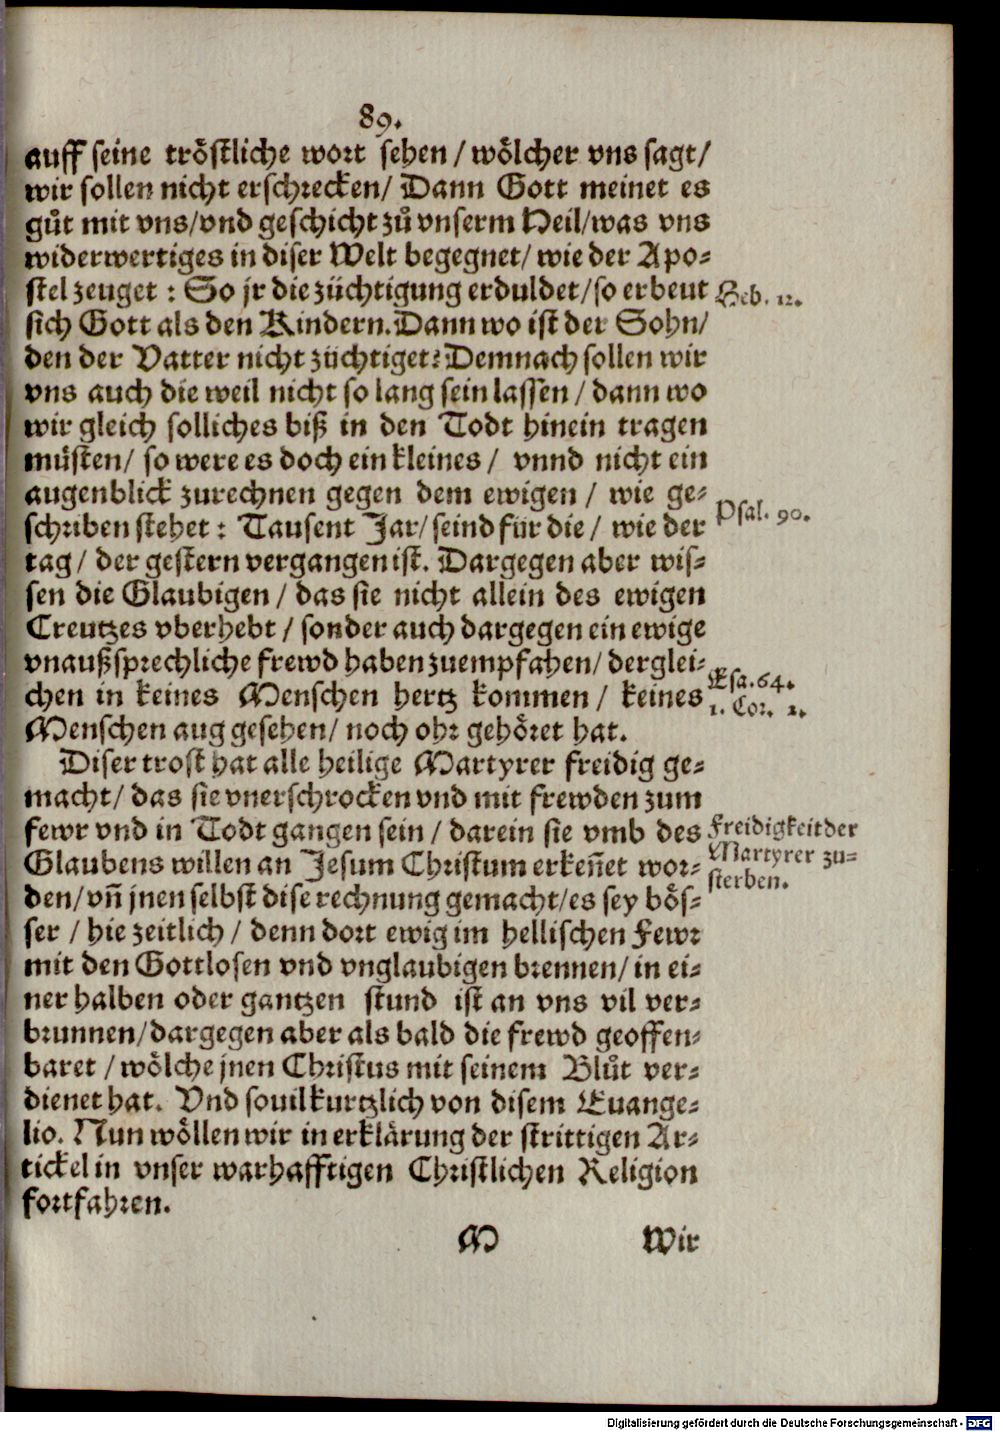 89.
auff seine tröstliche wort sehen / wölcher vns sagt/
wir sollen nicht erschrecken/ Dann Gott meinet es
gůt mit vns/vnd geschicht zů vnserm Heil/was vns
widerwertiges in diser Welt begegnet/ wie der Apo-
stel zeuget : So jr die züchtigung erduldet/so erbeut
Heb. 12.
sich Gott als den Kindern. Dann wo ist der Sohn/
den der Vatter nicht züchtiget? Demnach sollen wir
vns auch die weil nicht so lang sein lassen / dann wo
wir gleich solliches biß in den Todt hinein tragen
müsten/ so were es doch ein kleines / vnnd nicht ein
augenblick zurechnen gegen dem ewigen / wie ge-
schriben stehet : Tausent Jar/ seind für die / wie der
Psal. 90.
tag / der gestern vergangen ist. Dargegen aber wis-
sen die Glaubigen / das sie nicht allein des ewigen
Creutzes vberhebt / sonder auch dargegen ein ewige
vnaußsprechliche frewd haben zuempfahen/ derglei-
Esa. 64.
chen in keines Menschen hertz kommen / keines
1. Cor. 2.
Menschen aug gesehen/ noch ohr gehöret hat.
Diser trost hat alle heilige Martyrer freidig ge-
macht/ das sie vnerschrocken vnd mit frewden zum
fewr vnd in Todt gangen sein / darein sie vmb des
Freidigkeit der
Glaubens willen an Jesum Christum erkeñet wor-
Martyrer zu-
sterben.
den/ vñ jnen selbst dise rechnung gemacht/es sey bös-
ser / hie zeitlich / denn dort ewig im hellischen Fewr
mit den Gottlosen vnd vnglaubigen brennen/ in ei-
ner halben oder gantzen stund ist an vns vil ver-
brunnen/dargegen aber als bald die frewd geoffen-
baret / wölche jnen Christus mit seinem Blůt ver-
dienet hat. Vnd souil kurtzlich von disem Euange-
lio. Nun wöllen wir in erklärung der strittigen Ar-
tickel in vnser warhafftigen Christlichen Religion
fortfahren.
M Wir
Digitalisierung gefördert durch die Deutsche Forschungsgemeinschaft - DFG